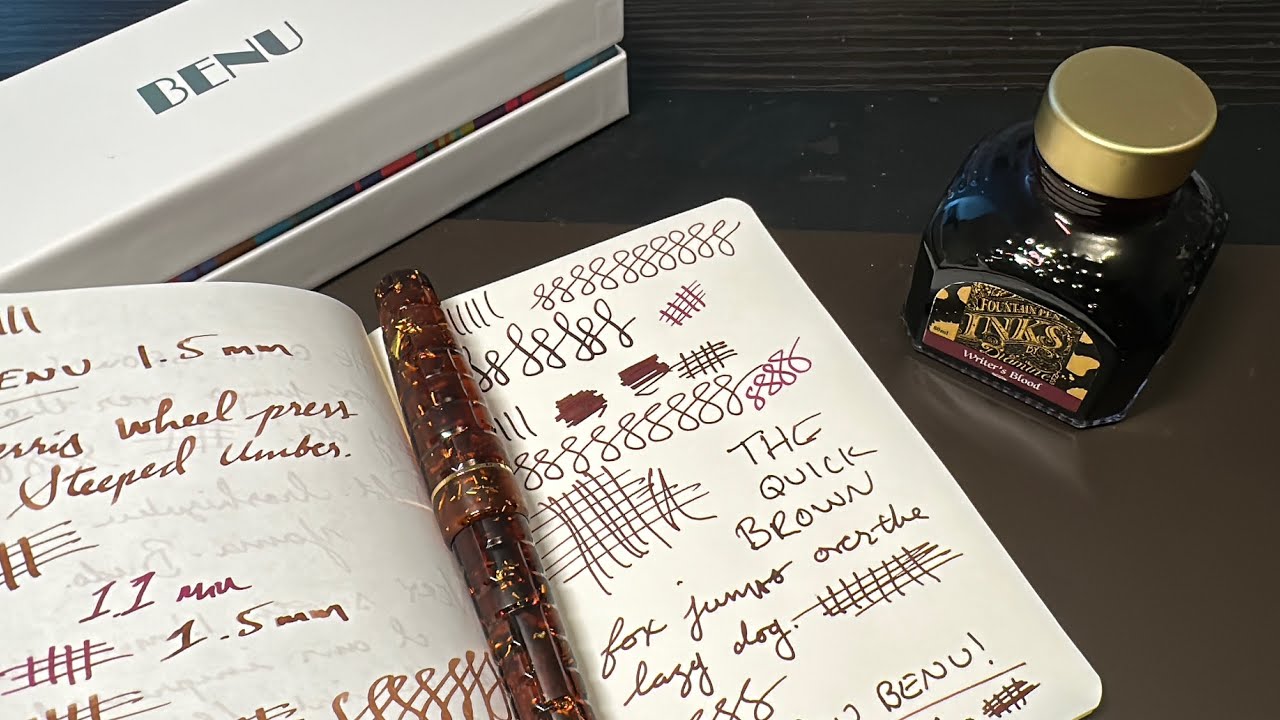 BENU
FOUNTAIN PEN
INKS
BY
Diamine
Writer's Blood
BENU 1.5mm
Ferris Wheel press
Steeped Umber.
1.1 mm
1.5mm
THE
QUICK
BROWN
fox jumps over the
lazy dog.
BENU!